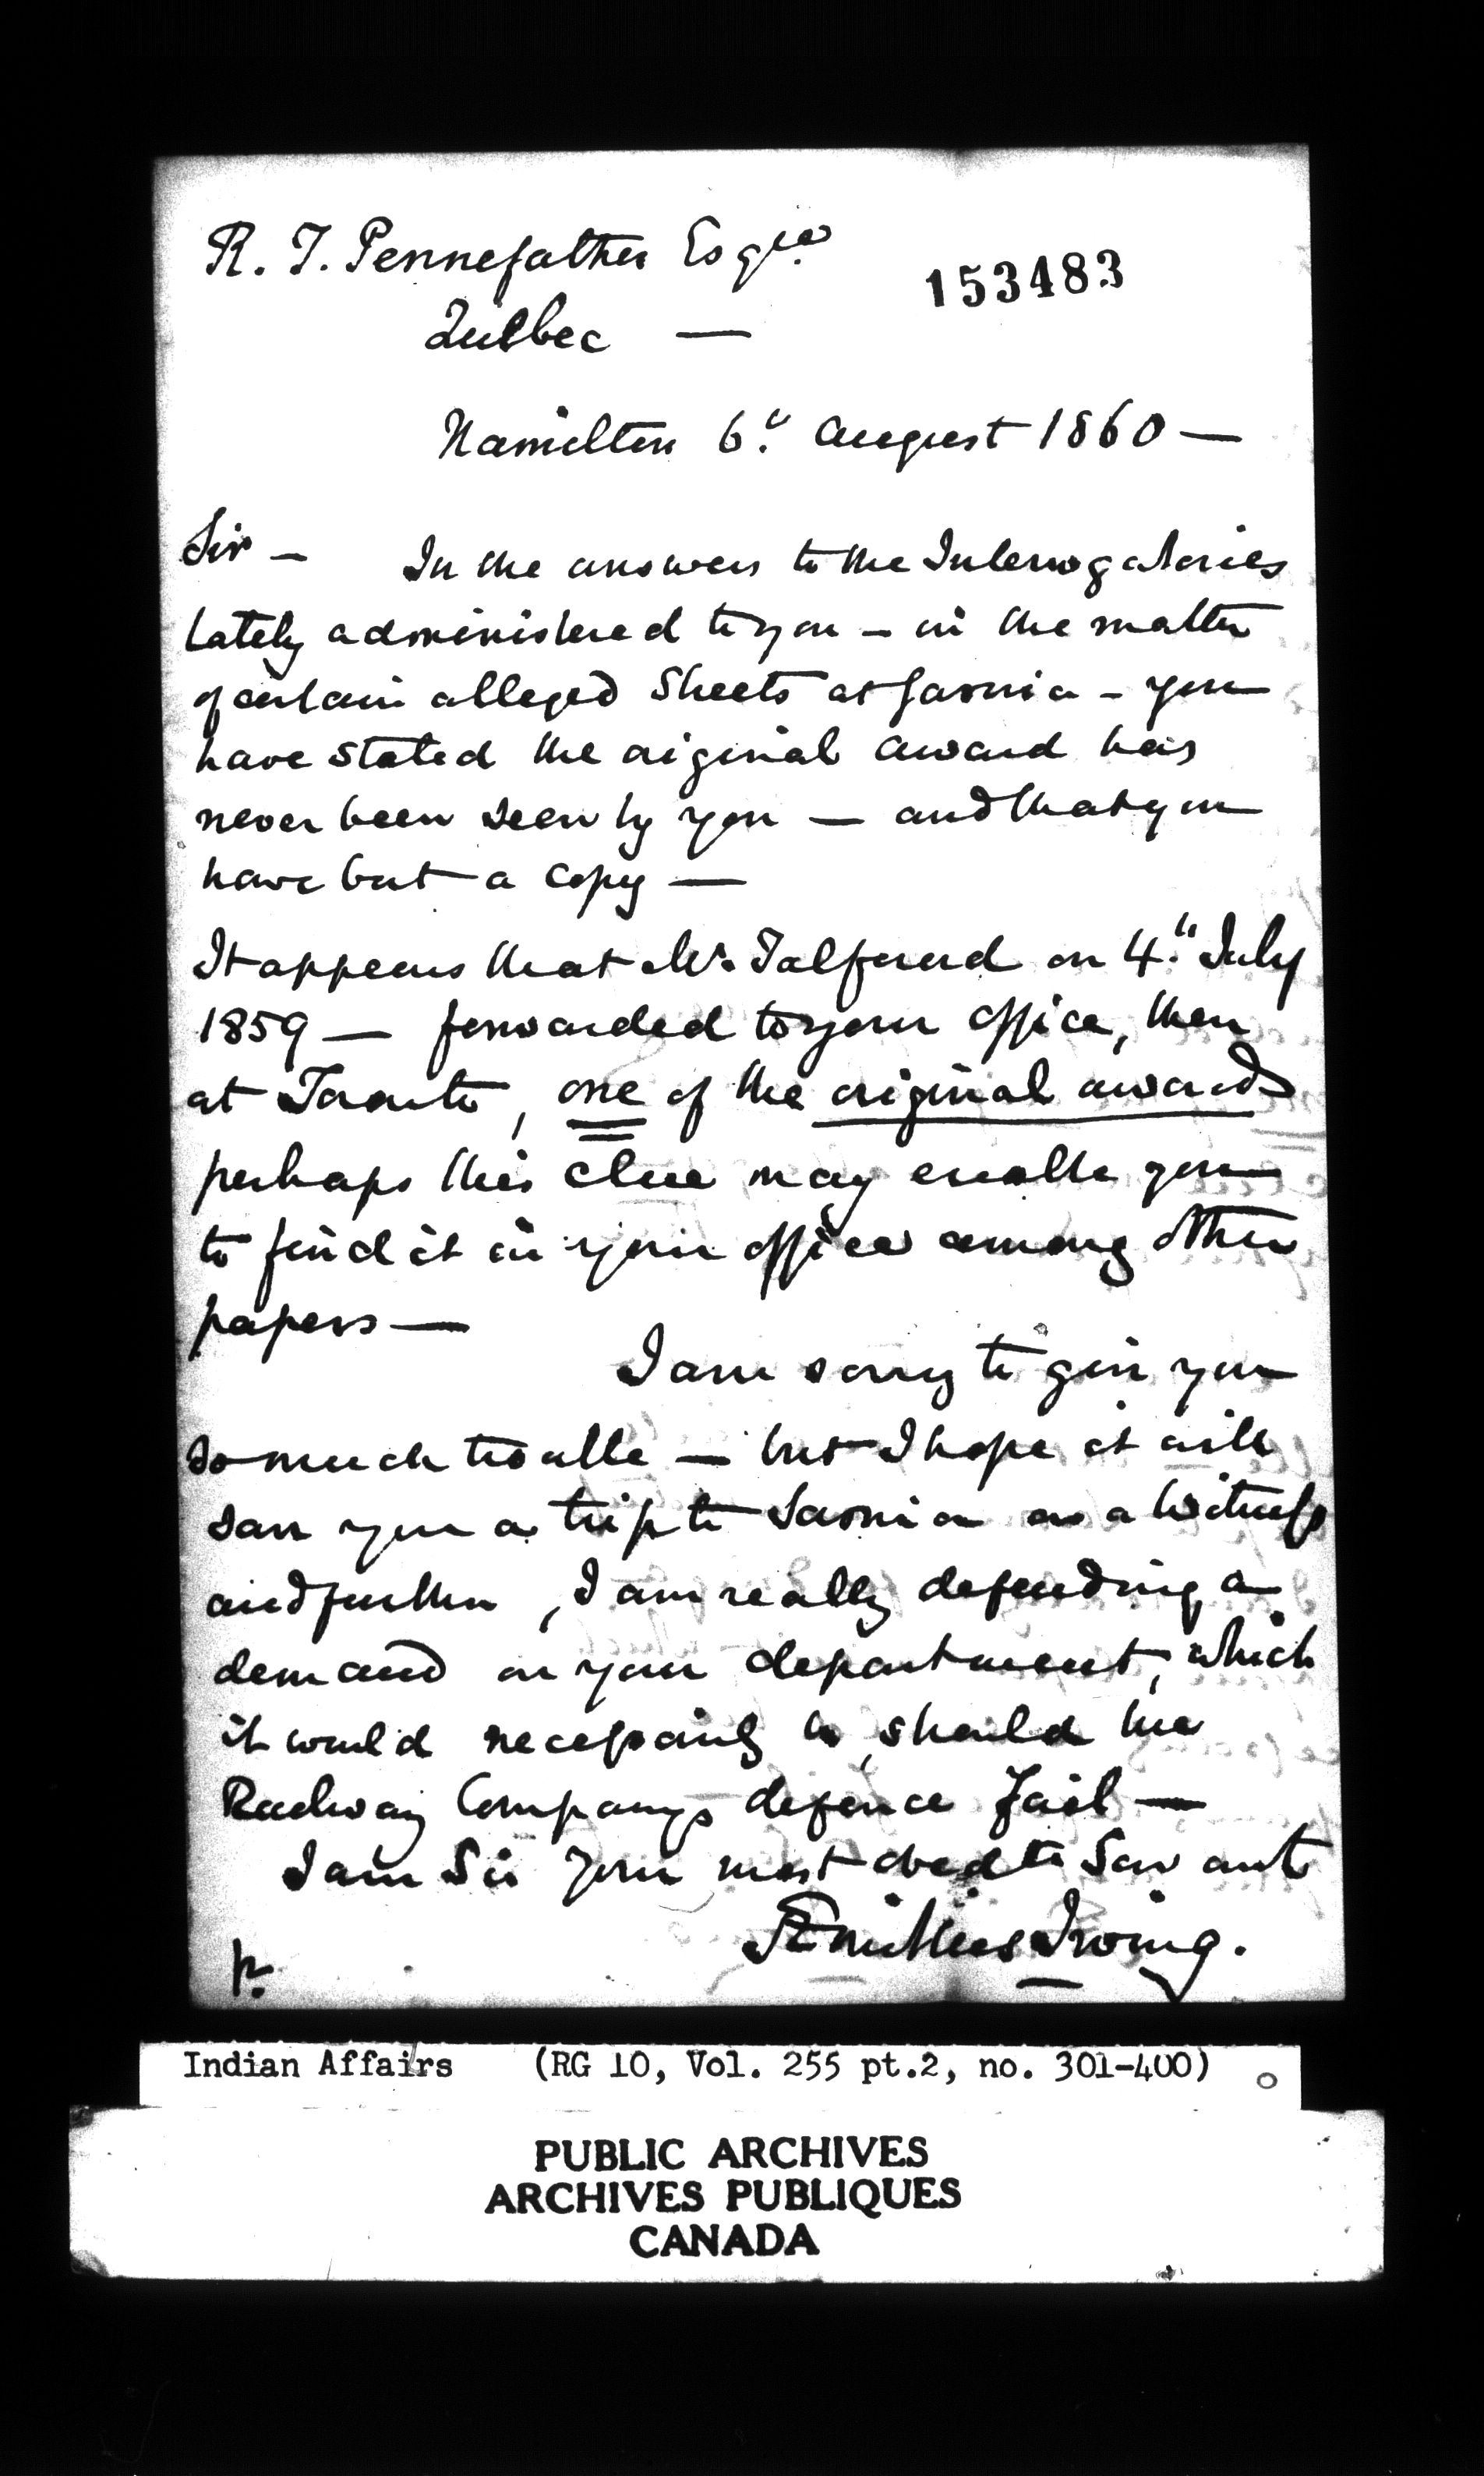 R. T. Pennefather Esqre
153483
Quebec —
Hamilton 6th August 1860 —
Sir — In the answers to the Interrogatories
lately administered to you — in the matter
of certain alleged Streets at Sarnia — you
have stated the original award has
never been seen by you — and that you
have but a copy —
It appears that Mr. Talfourd on 4th July
1859 — forwarded to your office, then
at Toronto, one of the original awards
perhaps this clue may enable you
to find it in your office among other
papers —
I am sorry to give you
so much trouble — but I hope it will
save you a trip to Sarnia as a Witness
and further, I am really defending a
demand on your department, which
it would necessarily be, should the
Railway Company's defence fail —
I am Sir your most obedt Servant
Æmilius Irving.
Indian Affairs (RG 10, Vol. 255 pt.2, no. 301-400)
PUBLIC ARCHIVES
ARCHIVES PUBLIQUES
CANADA